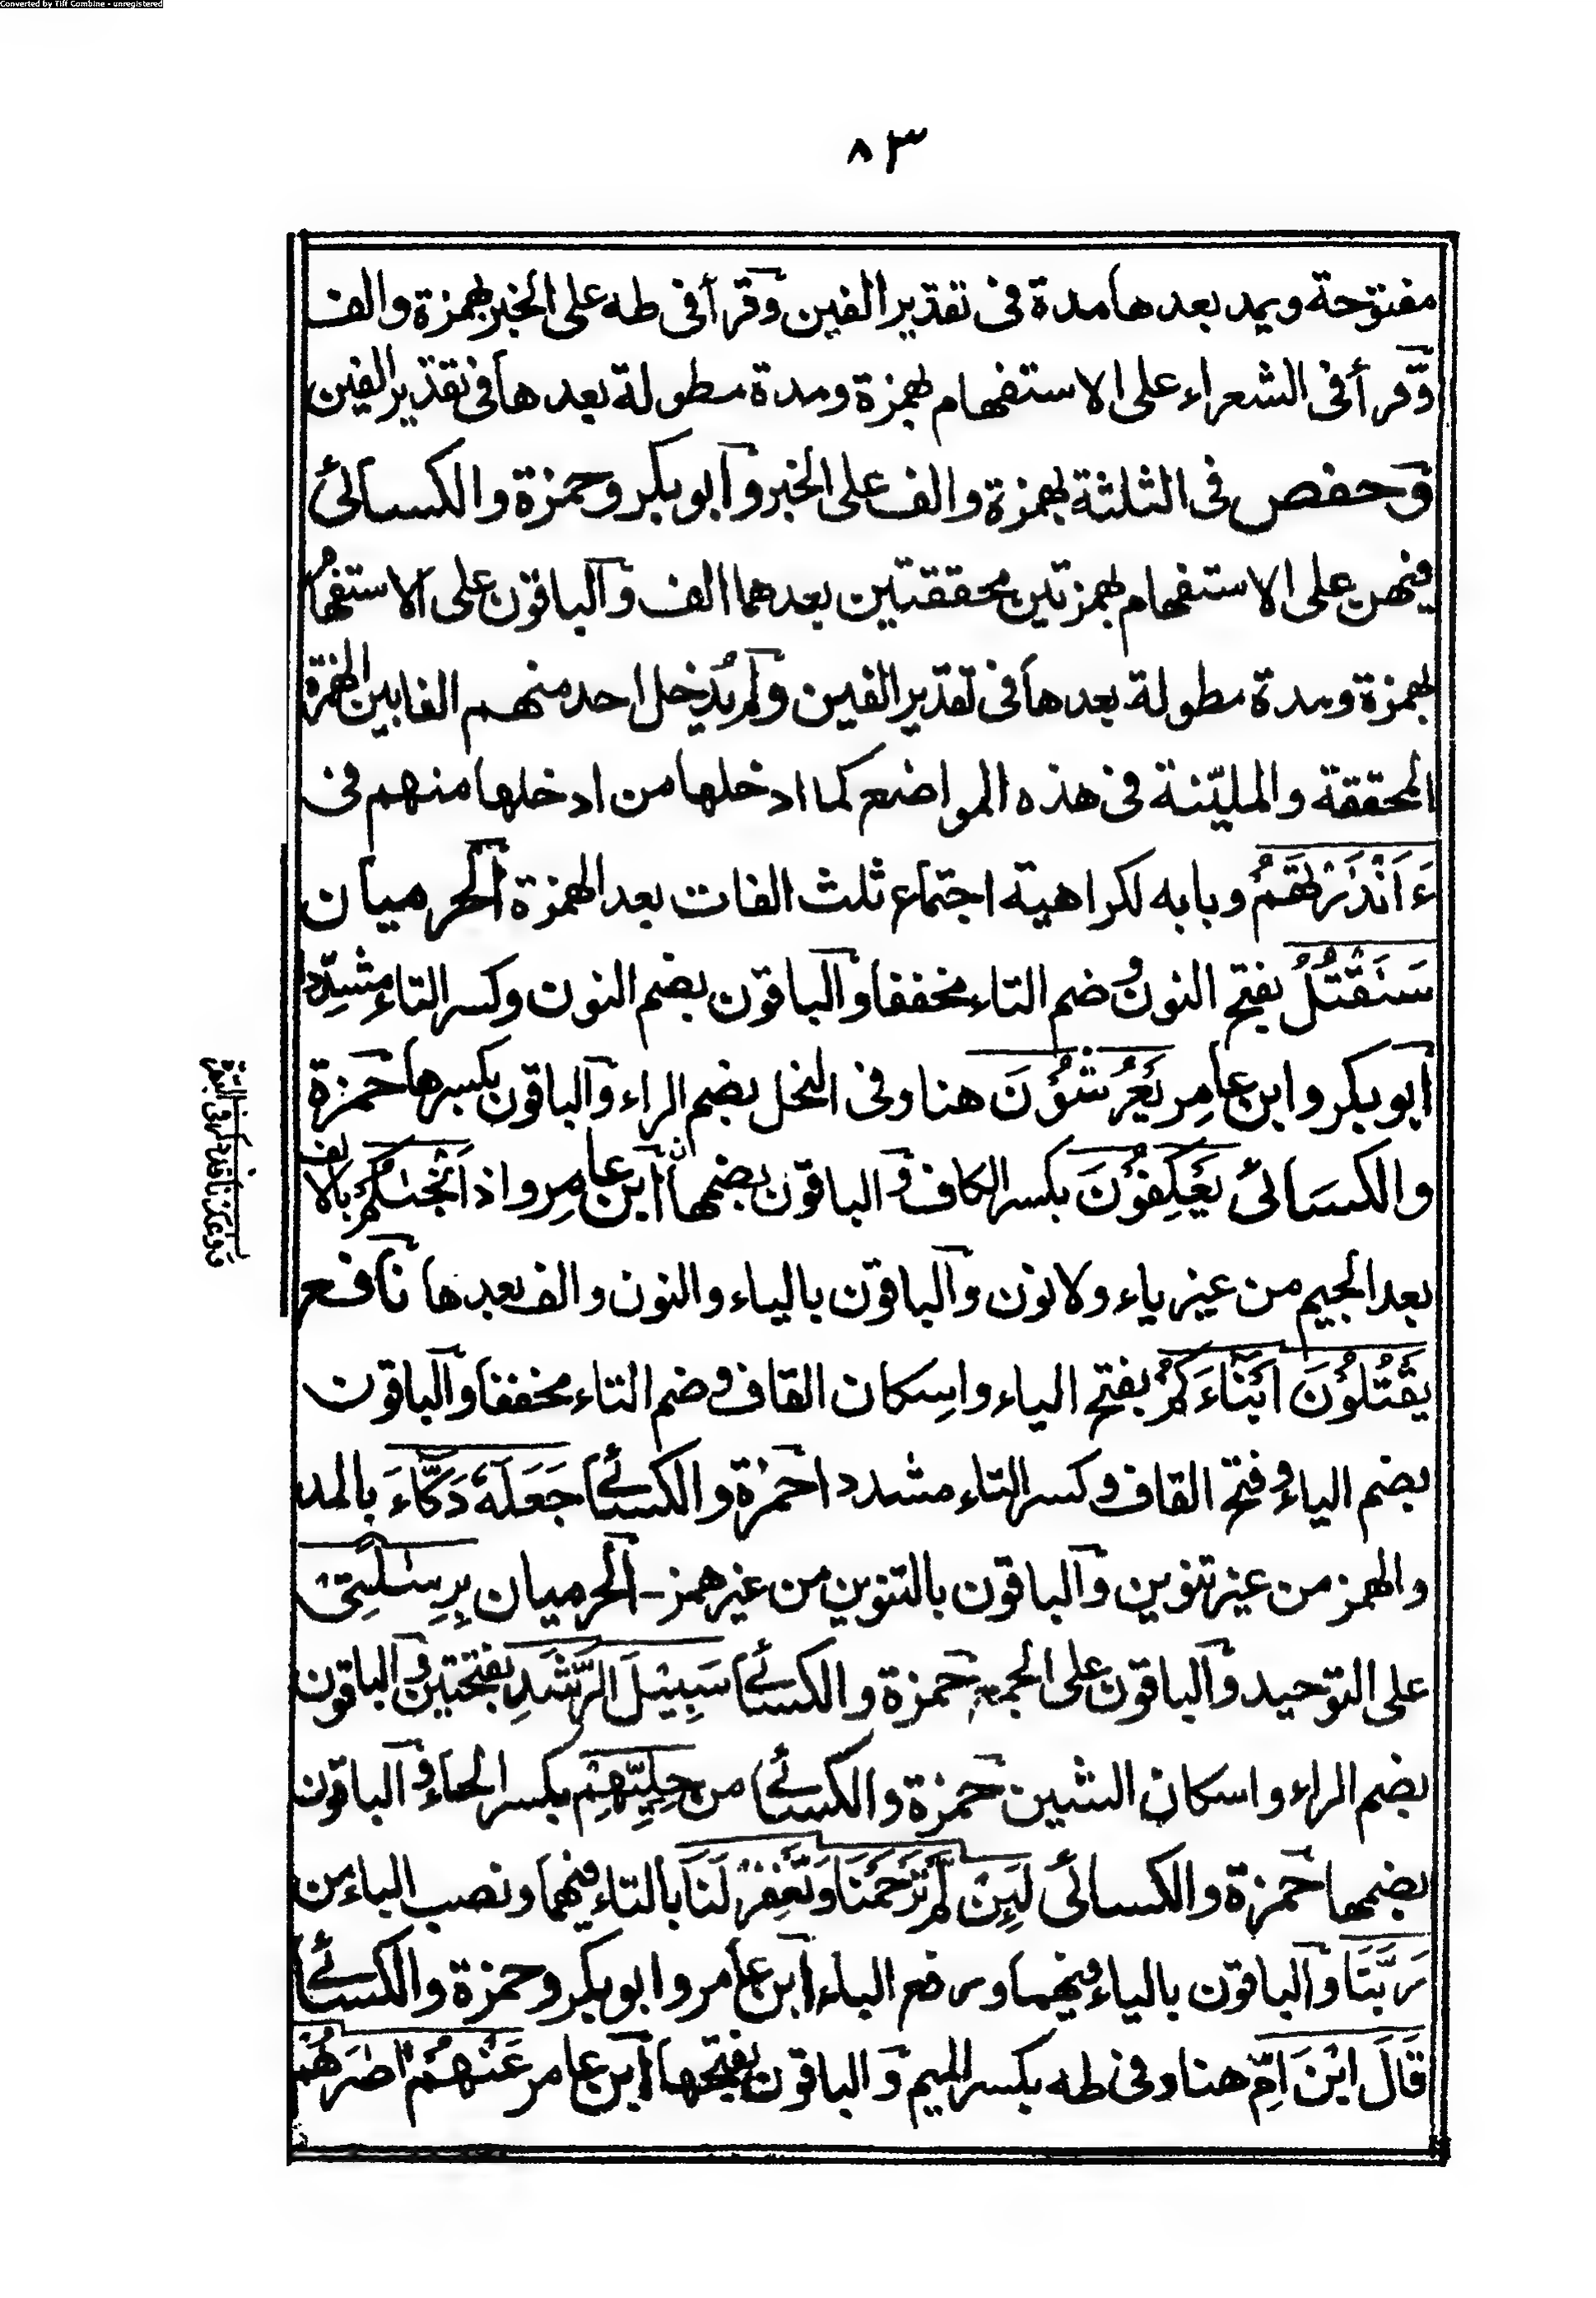 Converted by Tiff Combine - unregistered
٨٣
مفتوحة ويمد بعدها مدة فى تقدير الفين وقرأ فى طه على الخبر بهمزة والف
وقرأ فى الشعراء على الاستفهام بهمزة ومدة مطولة بعدها فى تقدير الفين
وحفص فى الثلثة بهمزة والف على الخبر وابو بكر وحمزة والكسائى
فيهن على الاستفهام بهمزتين محققتين بعدهما الف والباقون على الاستفهام
بهمزة ومدة مطولة بعدها فى تقدير الفين ولم يُدخل احد منهم الفا بين الهمزة
المحققة والمليّنة فى هذه المواضع كما ادخلها من ادخلها منهم فى
ءَاَنْذَرْتَهُمْ وبابه لكراهية اجتماع ثلث الفات بعد الهمزة الحرميان
سَنَقْتُلُ بفتح النون وضم التاء مخففا والباقون بضم النون وكسر التاء مشدِّدا
ابو بكر وابن عامِر يَعْرُشُوْنَ هنا وفى النحل بضم الراء والباقون بكسرها حمزة
والكسائى يَعْكِفُوْنَ بكسر الكاف والباقون بضمها ابن عامِر واذ اَنْجٰىكُمْ بالالف
بعد الجيم من غير ياء ولا نون والباقون بالياء والنون والف بعدها نافع
يَقْتُلُوْنَ اَبْنَآءَكُمْ بفتح الياء واِسكان القاف وضم التاء مخففا والباقون
بضم الياء وفتح القاف وكسر التاء مشددا حمزة والكسائى جَعَلَهٗ دَكَّآءَ بالمد
والهمز من غير تنوين والباقون بالتنوين من غير همز - الحرميان بِرِسٰلَتِىْ
على التوحيد والباقون على الجمع حمزة والكسائى سَبِيْلَ الرَّشَدِ بفتحتين والباقون
بضم الراء واسكان الشين حمزة والكسائى من حِلِيِّهِمْ بكسر الحاء والباقون
بضمها حمزة والكسائى لَئِنْ لَّمْ تَرْحَمْنَا وَتَغْفِرْ لَنَا بالتاء فيهما ونصب الباء من
رَبَّنَا والباقون بالياء فيهما ورفع الباء ابن عامر وابو بكر وحمزة والكسائى
قَالَ ابْنَ اُمِّ هنا وفى طه بكسر الميم والباقون بفتحها ابن عامر عَنْهُمْ اٰصَارَهُمْ